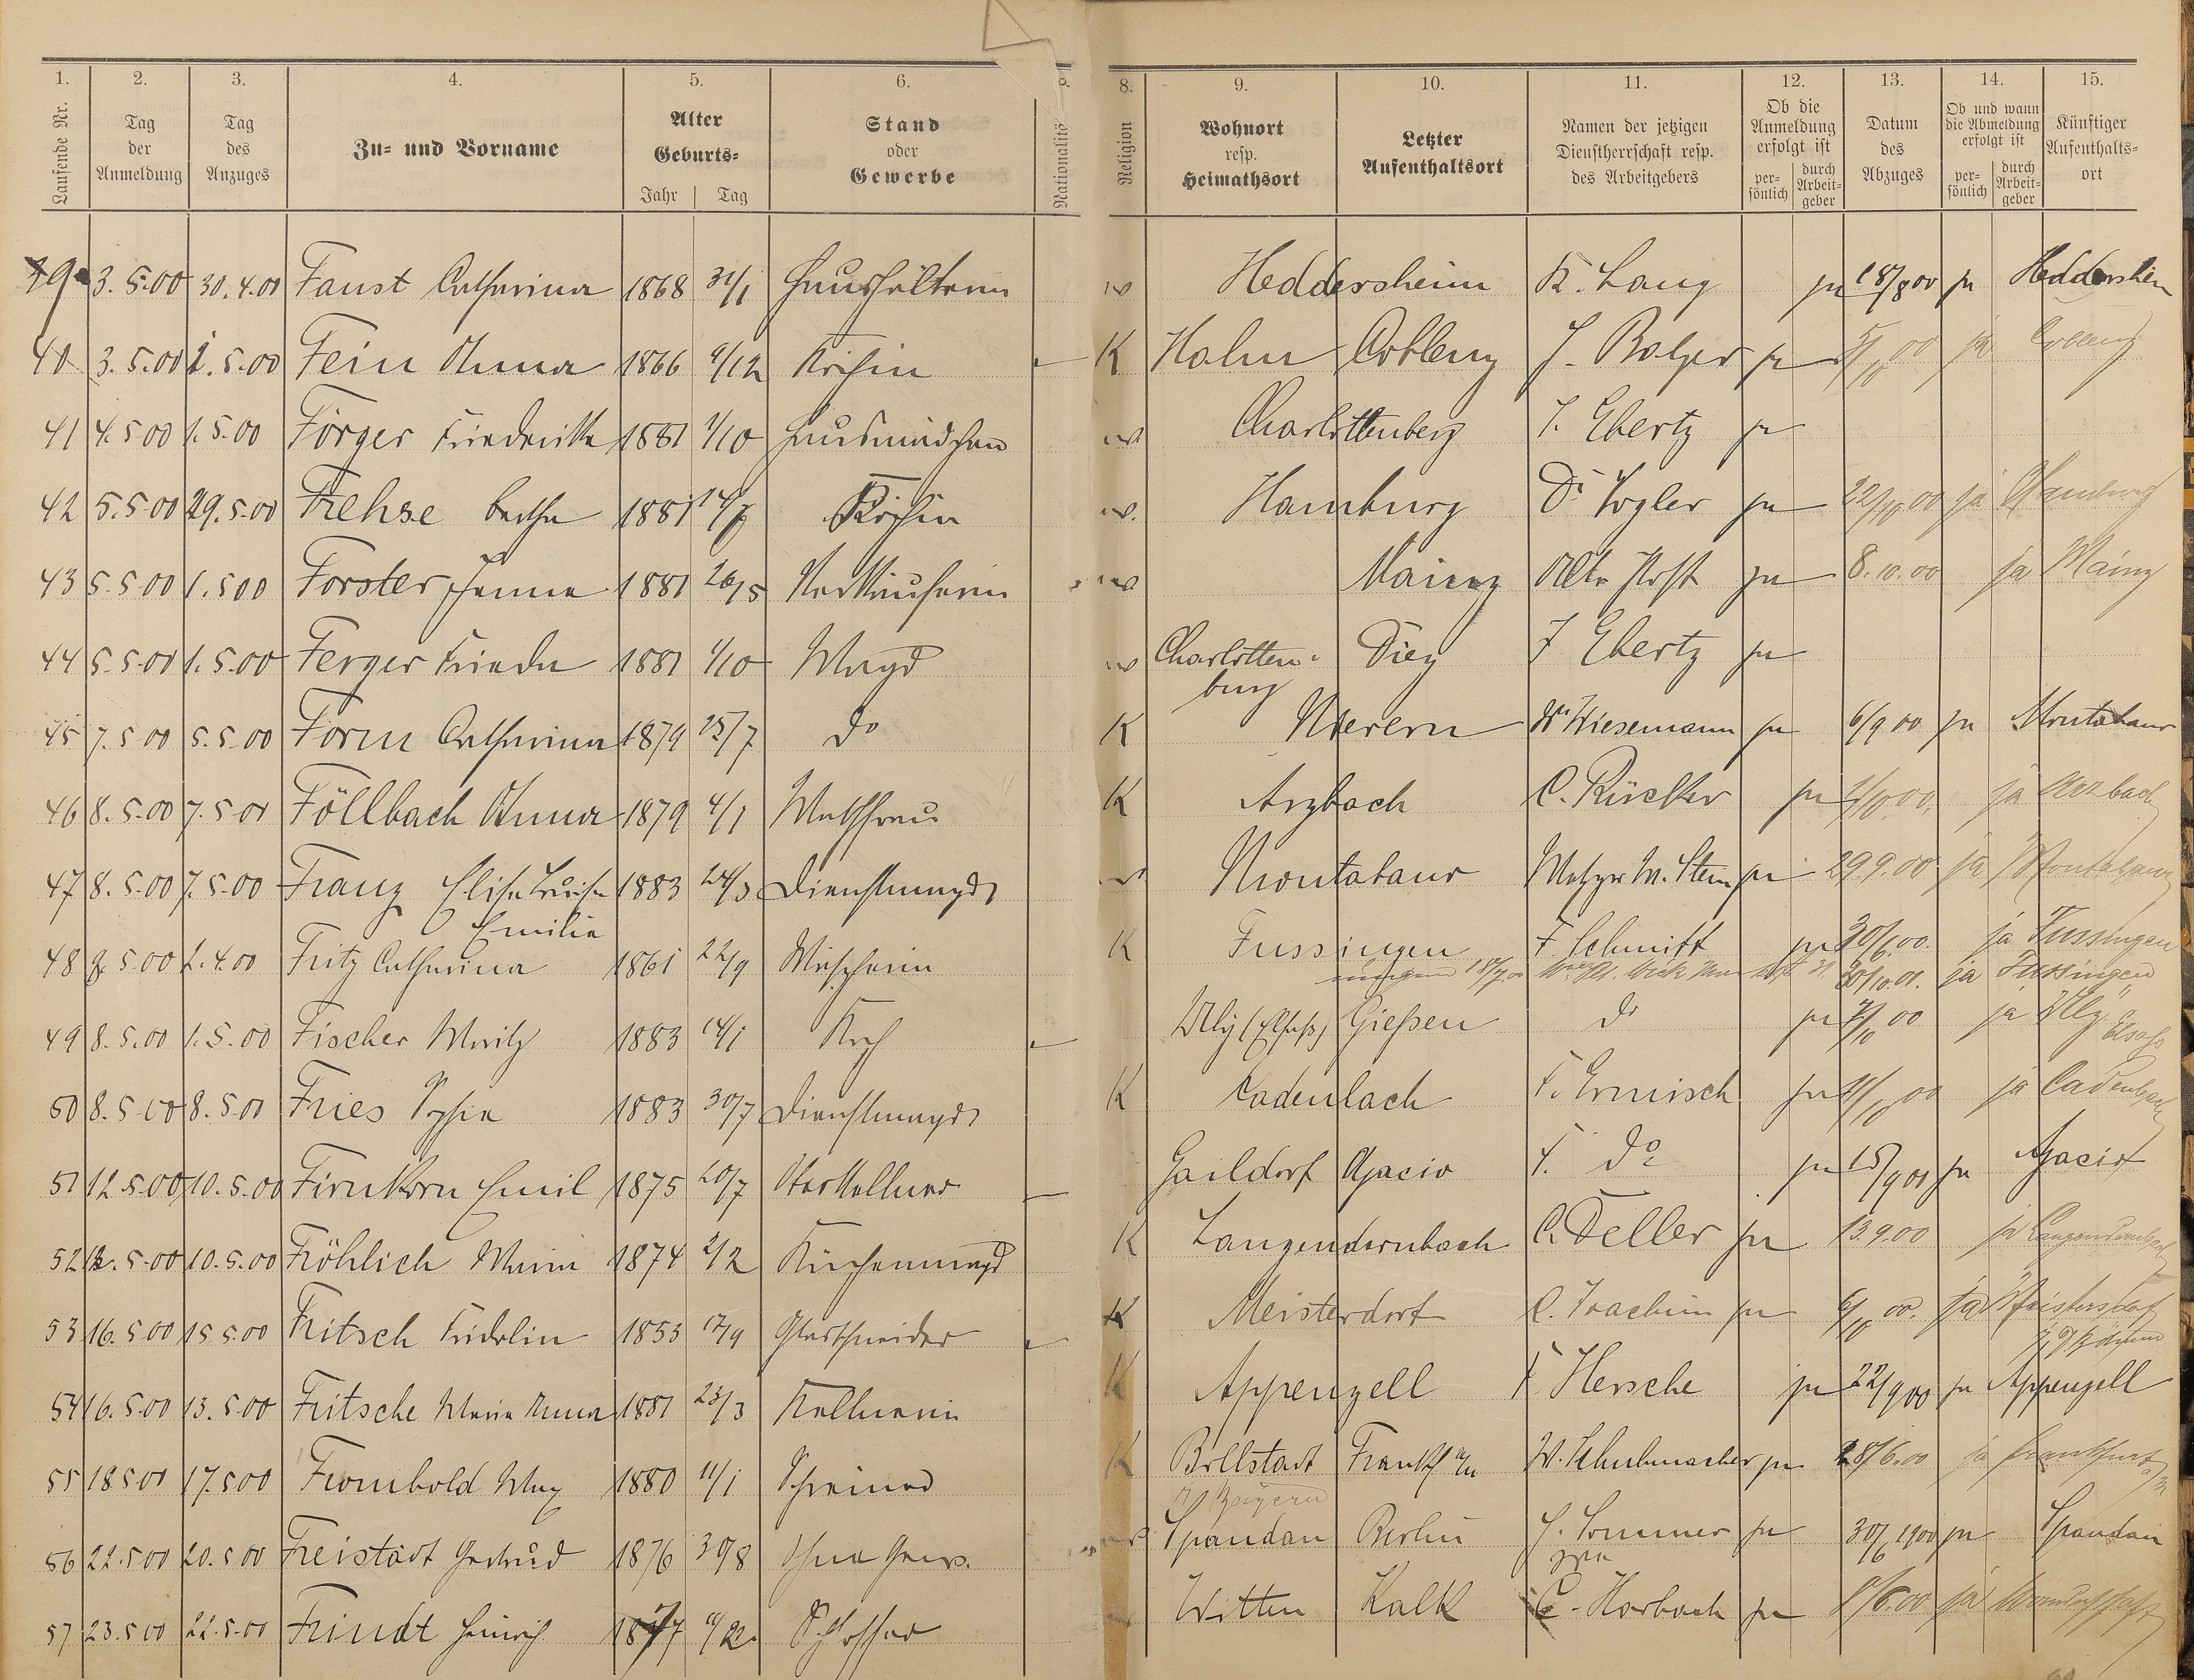 1. 2. 3. 4. 5. 6. 8. 9. 10. 11. 12. 13. 14. 15.
Laufende Nr. Tag der Anmeldung Tag des Anzuges Zu- und Vorname Alter Geburts- Jahr Tag Stand oder Gewerbe Nationalitä Religion Wohnort resp. Heimathsort Letzter Aufenthaltsort Namen der jetzigen Dienstherrschaft resp. des Arbeitgebers Ob die Anmeldung erfolgt ist per- sönlich durch Arbeit- geber Datum des Abzuges Ob und wann die Abmeldung erfolgt ist per- sönlich durch Arbeit- geber Künftiger Aufenthalts- ort
39 3.5.00 30.4.00 Faust Catharina 1868 31/1 Haushälterin Heddersheim K. Lang ja 18/8 00 ja
40 3.5.00 1.5.00 Fein Anna 1866 9/12 Köchin K Holm Coblenz J. Bolzer ja 00 ja Coblenz
41 4.5.00 1.5.00 Förger Friedericke 1881 1/10 Hausmädchen Charlottenberg J. Ebertz ja
42 5.5.00 29.5.00 Frehse Bertha 1881 Köchin Hamburg Dr Vogler ja 22/10 00 ja Hamburg
43 5.5.00 1.5.00 Forster 1881 26/5 Verkäuferin Mainz Alte Post ja 8.10.00 ja Mainz
44 5.5.00 1.5.00 Ferger Frieda 1881 1/10 Magd Charlotten- Diez J Ebertz ja
burg
45 7.5.00 5.5.00 Form Catharina 1879 25/7 do K W. Wiesemann ja 6/9 00 ja Montabaur
46 8.5.00 7.5.00 Föllbach Anna 1879 4/1 Waschfrau K Arzbach C. Rücker ja ja Arzbach
47 8.5.00 7.5.00 Franz Elise Luise 1883 24/3 Dienstmagd Montabaur Metzger M. Stein ja 29.9.00 ja Montabaur
Emilie
48 8.5.00 1.4.00 Fritz Catharina 1861 22/9 Wäscherin K Fussingen F. Schmitt ja 30/6.00. ja Fussingen
18/7.00 30/10.00. ja Fussingen
49 8.5.00 1.5.00 Fischer Moritz 1883 14/1 Koch (Elsaß) Gießen do ja 00 ja Elsaß
50 8.5.00 8.5.00 Fries Sofia 1883 30/7 Dienstmagd K Cadenbach F. Ermisch ja 00 ja Cadenbach
51 12.5.00 10.5.00 Firnkorn Emil 1875 20/7 Oberkellner Gaildorf Ajacio F. do ja 15/9 00 ja Ajacio
52 12.5.00 10.5.00 Fröhlich Maria 1874 2/2 Küchenmagd K Langendernbach C. Feller ja 13.9.00 ja Langendernbach
53 16.5.00 15.5.00 Fritsch Fridolin 1853 17/9 Glasschneider K Meisterdorf C. Joachim ja 6/10 00. ja Meistersdorf
i/ Böhmen
54 16.5.00 13.5.00 Fritsche Maria Anna 1881 23/3 Kellnerin K Appenzell F Hersche ja 22/9 00 ja Appenzell
55 18.5.00 17.5.00 Frombold Max 1880 11/1 Schreiner K Bollstadt Frankf a/M W. Schuhmacher ja 28/6.00 ja Frankfurt a/M
i/ Bayern
56 22.5.00 20.5.00 Freistadt Gertrud 1876 30/8 Ohne Gew. Spandau Berlin J. Sommer ja 30/6 1900 ja Spandau
57 23.5.00 22.5.00 Frindt Heinrich 1877 Schlosser Witten Kalk C. Horbach ja 8/6.00 ja Wanderschaft